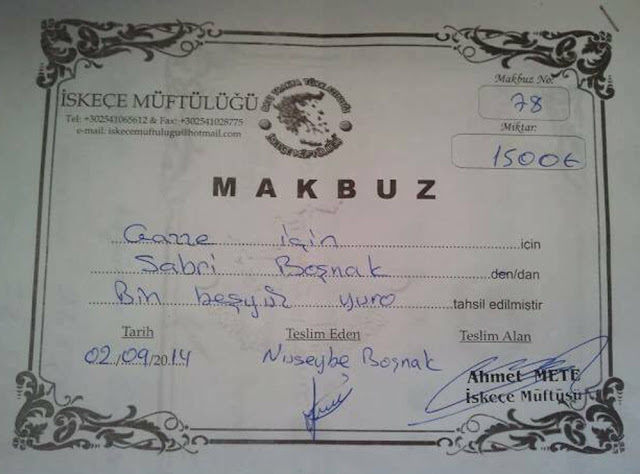 İSKEÇE MÜFTÜLÜĞÜ
Tel: +302541065612 & Fax: +302541028775
e-mail: iskecemuftulugu@hotmail.com
İSKEÇE MÜFTÜLÜĞÜ
Makbuz No:
78
Miktar:
1500€
MAKBUZ
Gazze için için
Sabri Boşnak den/dan
Bin beşyüz yuro tahsil edilmistir
Tarih Teslim Eden Teslim Alan
02/09/2014 Nuseybe Boşnak
Ahmet METE
İskeçe Müftüsü